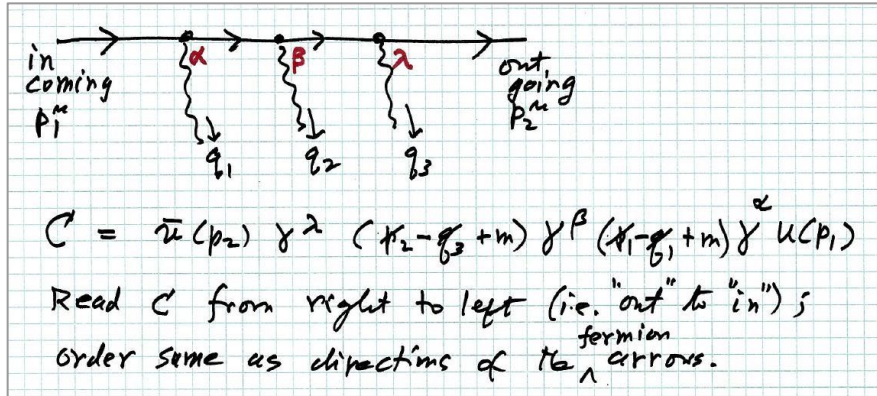 α β λ
in out
coming going
p₁^μ p₂^μ
q₁ q₂ q₃
C = ū(p₂) γ^λ (p̸₂-q̸₃+m) γ^β (p̸₁-q̸₁+m) γ^α u(p₁)
Read C from right to left (i.e. "out" to "in");
order same as directions of the fermion arrows.